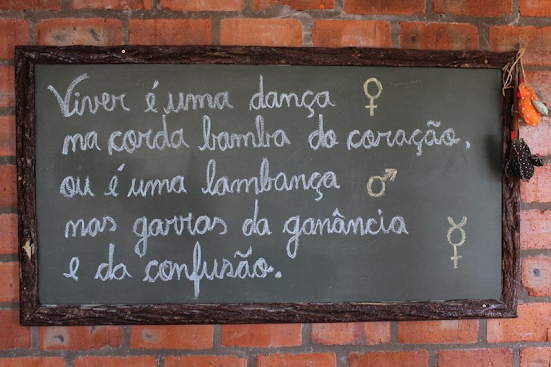 Viver é uma dança ♀
na corda bamba do coração,
ou é uma lambança ♂
nas garras da ganância
e da confusão. ☿